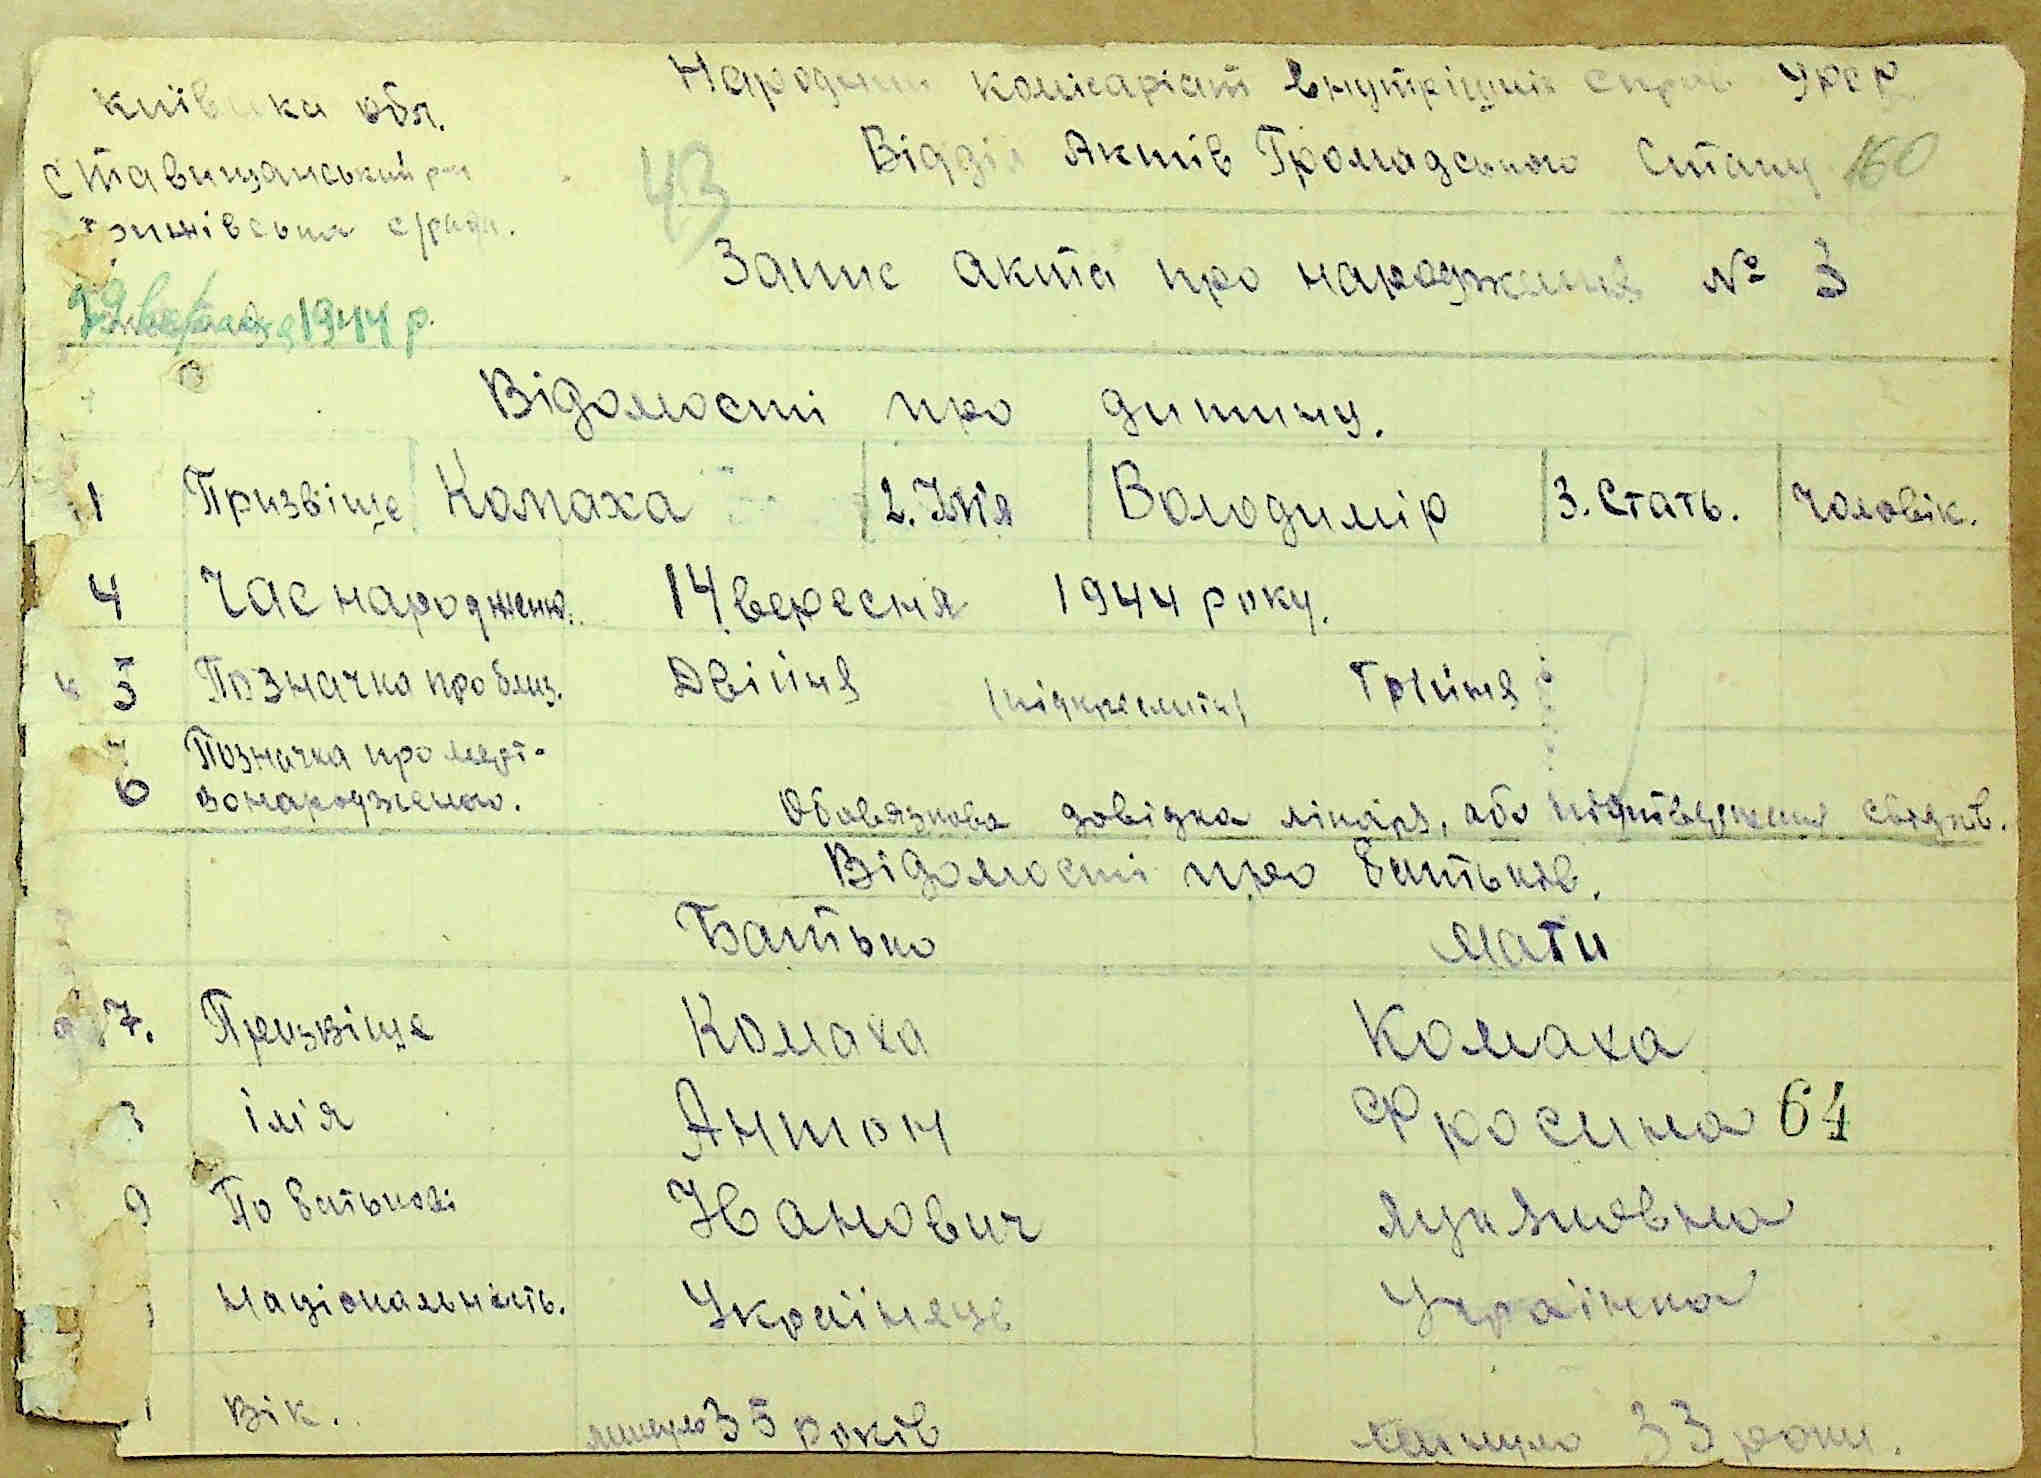 Київська обл.
Народний комісаріат внутрішніх справ УРСР
Ставищанський р-н
Відділ Актів Громадського Стану 160
43
с/рада.
Запис акта про народження № 3
1944 р.
Відомості про дитину.
1 Призвіще Комаха 2. Імʼя Володимір 3. Стать. Чоловік.
4 Час народжен. 14 вересня 1944 року.
5 Позначка про близ. Двійня /підкреслить/ Трійня
6 Позначка про мертвонародженого.
Обовязкова довідка лікаря, або підтвердження свідків.
Відомості про батьків.
Батько Мати
7. Призвіще Комаха Комаха
імʼя Антон Фросина 64
9 По батькові Іванович Лукʼяновна
Національність. Українець Українка
Вік. минуло 35 років минуло 33 роки.